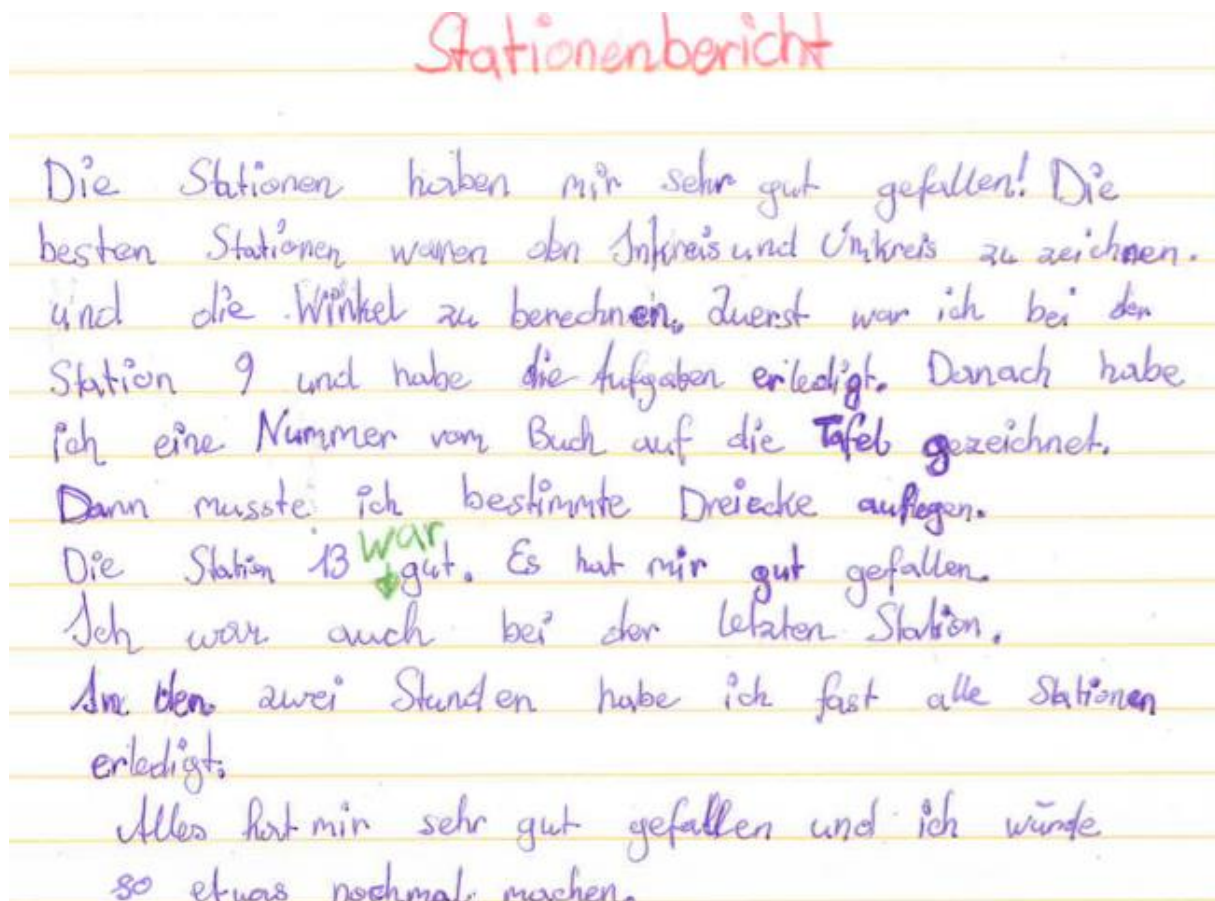 Stationenbericht
Die Stationen haben mir sehr gut gefallen! Die
besten Stationen waren den Inkreis und Umkreis zu zeichnen.
und die Winkel zu berechnen. Zuerst war ich bei der
Station 9 und habe die Aufgaben erledigt. Danach habe
ich eine Nummer vom Buch auf die Tafel gezeichnet.
Dann musste ich bestimmte Dreiecke auflegen.
Die Station 13 war gut. Es hat mir gut gefallen.
Ich war auch bei der letzten Station.
In den zwei Stunden habe ich fast alle Stationen
erledigt.
Alles hat mir sehr gut gefallen und ich würde
so etwas nochmal machen.